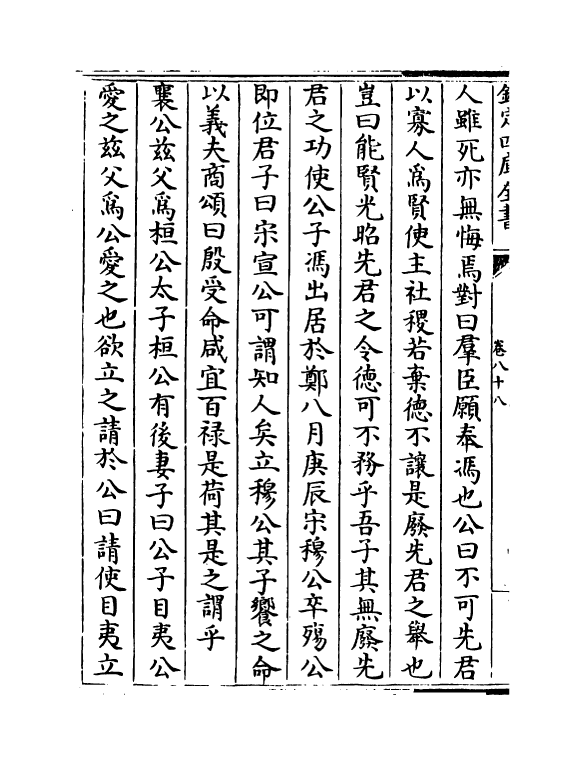 欽定四庫全書
卷八十八
人雖死亦無悔焉對曰羣臣願奉馮也公曰不可先君
以寡人爲賢使主社稷若棄德不讓是廢先君之舉也
豈曰能賢光昭先君之令德可不務乎吾子其無廢先
君之功使公子馮出居於鄭八月庚辰宋穆公卒殤公
即位君子曰宋宣公可謂知人矣立穆公其子饗之命
以義夫商頌曰殷受命咸宜百禄是荷其是之謂乎
襄公茲父爲桓公太子桓公有後妻子曰公子目夷公
愛之茲父爲公愛之也欲立之請於公曰請使目夷立